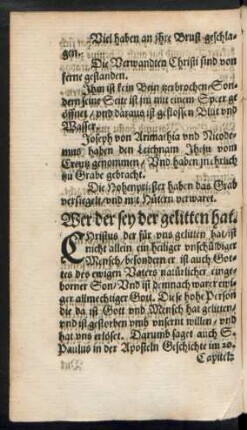 Viel haben an jhre Brust geschla-
gen.
Die Verwandten Christi sind von
ferne gestanden.
Ihm ist kein Bein zerbrochen/Son-
dern seine Seite ist jm mit einem Speer ge
öffnet/vnd daraus ist geflossen Blut vnd
Wasser.
Joseph von Arimathia vnd Nicode-
mus haben den Leichnam Jhesu vom
Creutz genommen/Vnd haben jn ehrlich
zu Grabe gebracht.
Die Hohenpriester haben das Grab
versiegelt/vnd mit Hütern verwaret.
Wer der sey der gelitten hat.
CHristus der für vns gelitten hat/ist
nicht allein ein heiliger vnschüldiger
Mensch/besondern er ist auch Got-
tes des ewigen Vaters natürlicher einge-
borner Son/Vnd ist demnach warer ewi-
ger allmechtiger Gott. Diese hohe Person
die da ist Gott vnd Mensch hat gelitten/
vnd ist gestorben vmb vnsert willen/vnd
hat vns erlöset. Darumb saget auch S.
Paulus in der Aposteln Geschichte im 20.
Capitelz